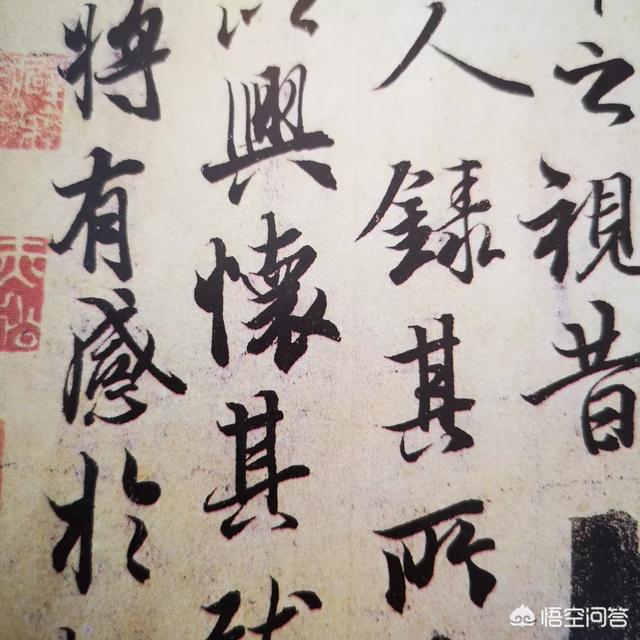 之視昔
人錄其所
興懷其
將有感於
悟空问答